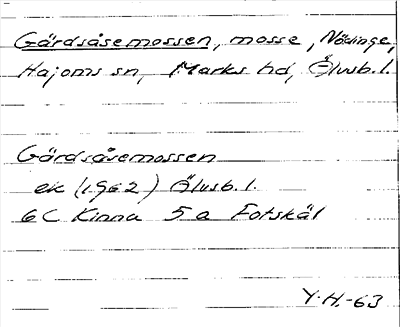 Gärdsåsemossen, mosse, Nödinge,
Hajoms sn, Marks hd, Älvsb. l.
Gärdsåsemossen
ek (1962) Älvsb. l.
6C Kinna 5a Fotskäl
Y.H.-63